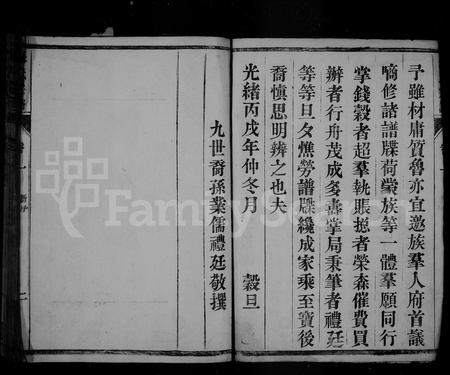 予雖材庸質魯亦宜邀族羣人府首議
嗃修諮譜牒荷榮族等一體羣願同行
掌錢穀者超羣執賬摠者榮森催費買
辦者行舟茂成多壽掌局秉筆者禮廷
等等旦夕憔勞譜牒纔成家乘至寶後
裔慎思明辨之也夫
光緒丙戌年仲冬月 穀旦
九世裔孫業儒禮廷敬撰
FamilySearch